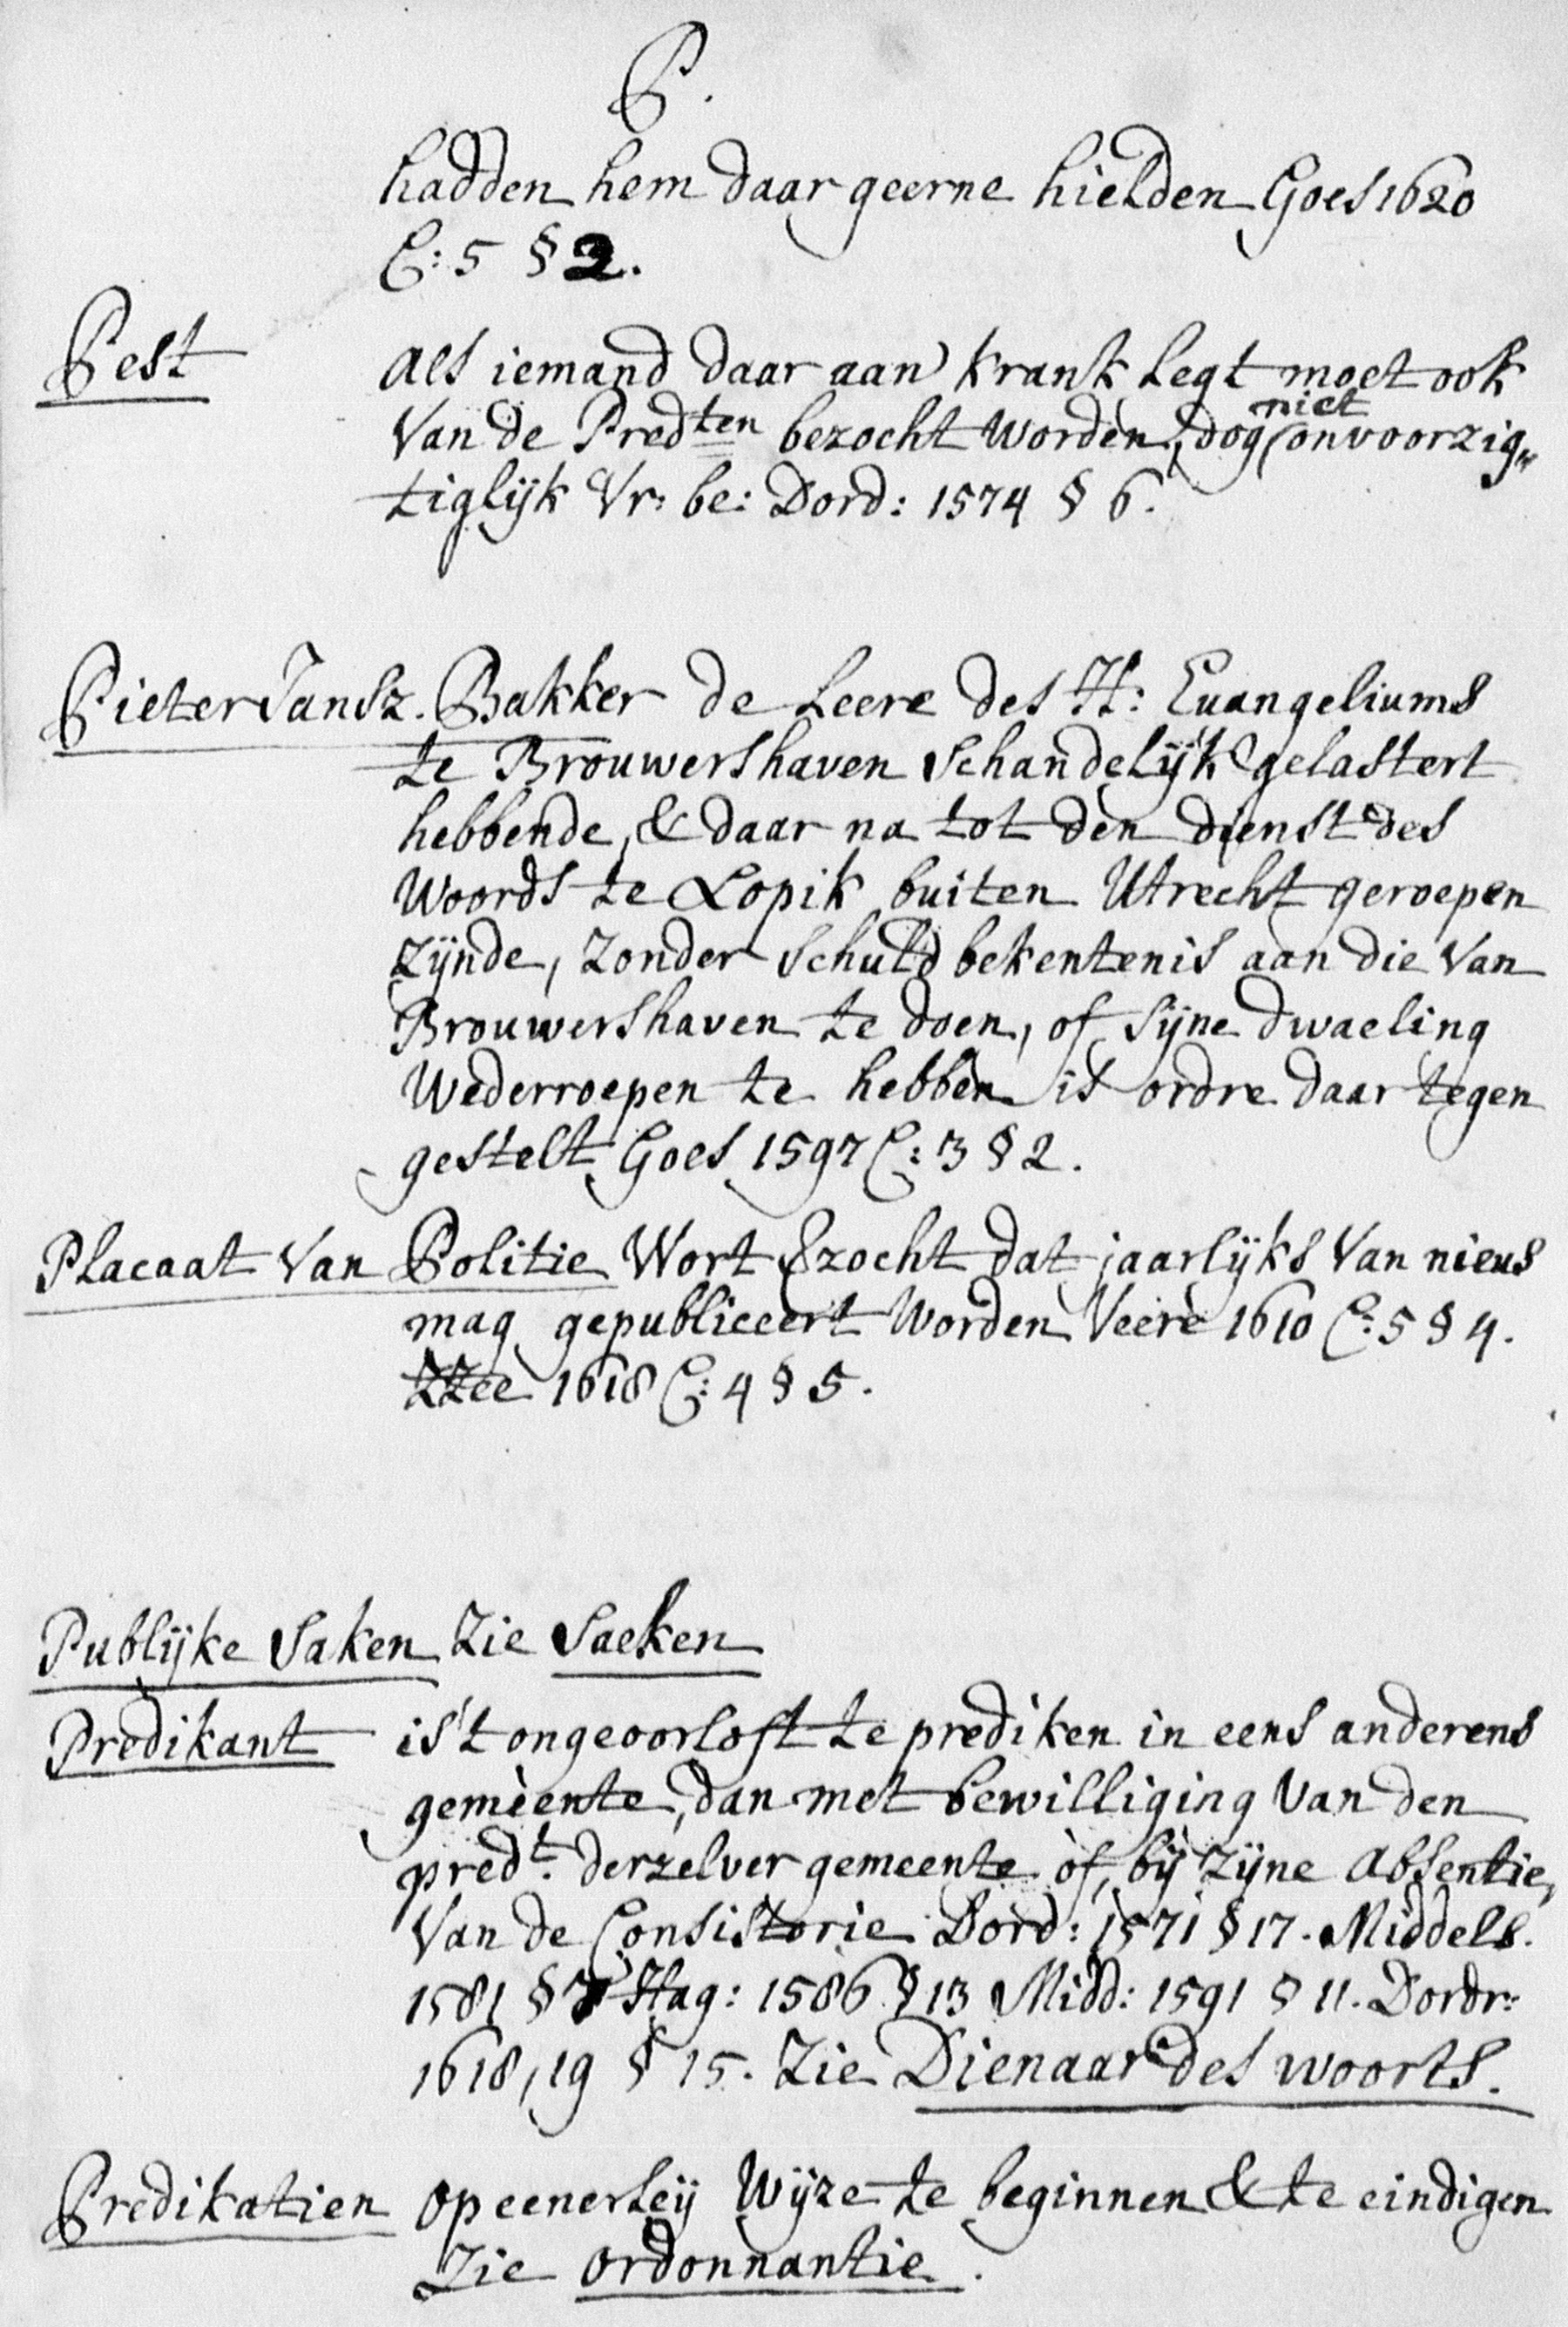 P.
hadden hem daar geerne hielden Goes 1620
C: 5 § 2.
Pest als iemand daar aan krank legt moet ook
van de Predten bezocht worden, dog niet onvoorzig„
tiglijk Vr: be: Dord: 1574 § 6.
Pieter Jansz. Bakker de leere des H: Euangeliums
te Brouwershaven schandelijk gelastert
hebbende, & daar na tot den dienst des
Woords te Lopik buiten Utrecht geroepen
zijnde, zonder schuld bekentenis aan die van
Brouwershaven te doen, of sijne dwaeling
Wederroepen te hebben is ordre daar tegen
gestelt Goes 1597 C: 3 § 2.
Placaat van Politie Wort zocht dat jaarlijks van nieus
mag gepubliceert worden Veere 1610 C: 5 § 4.
ZZee 1618 C: 4 § 5.
Publijke Saken Zie Saeken
Predikant is 't ongeoorloft te prediken in eens anderens
gemeente, dan met bewilliging van den
predt. derzelver gemeente of, bij zijne absentie,
van de Consistorie Dord: 1571 § 17. Middelb.
1581 § Hag: 1586 § 13 Midd: 1591 § 11. Dordr:
1618, 19 § 15. Zie Dienaar des woorts.
Predikatien op eenerleij wijze te beginnen & te eindigen
Zie ordonnantie.